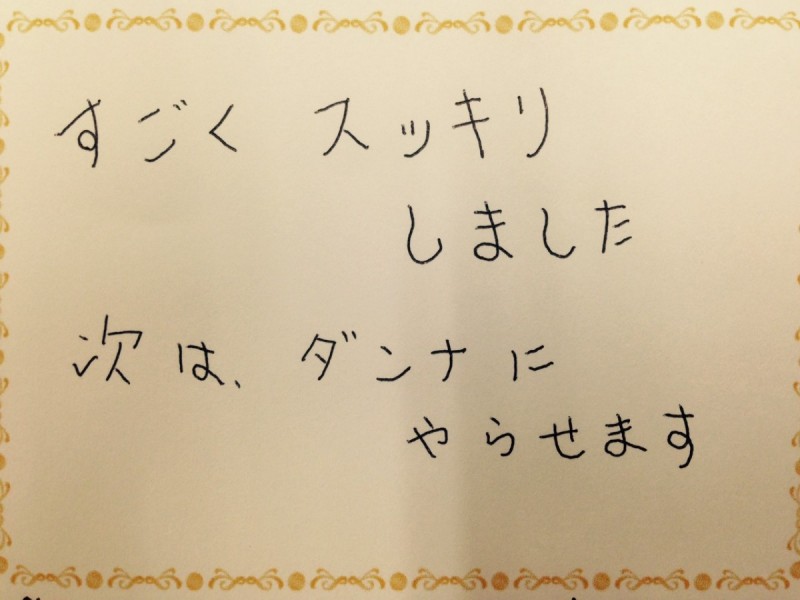 すごく スッキリ
しました
次は、ダンナに
やらせます